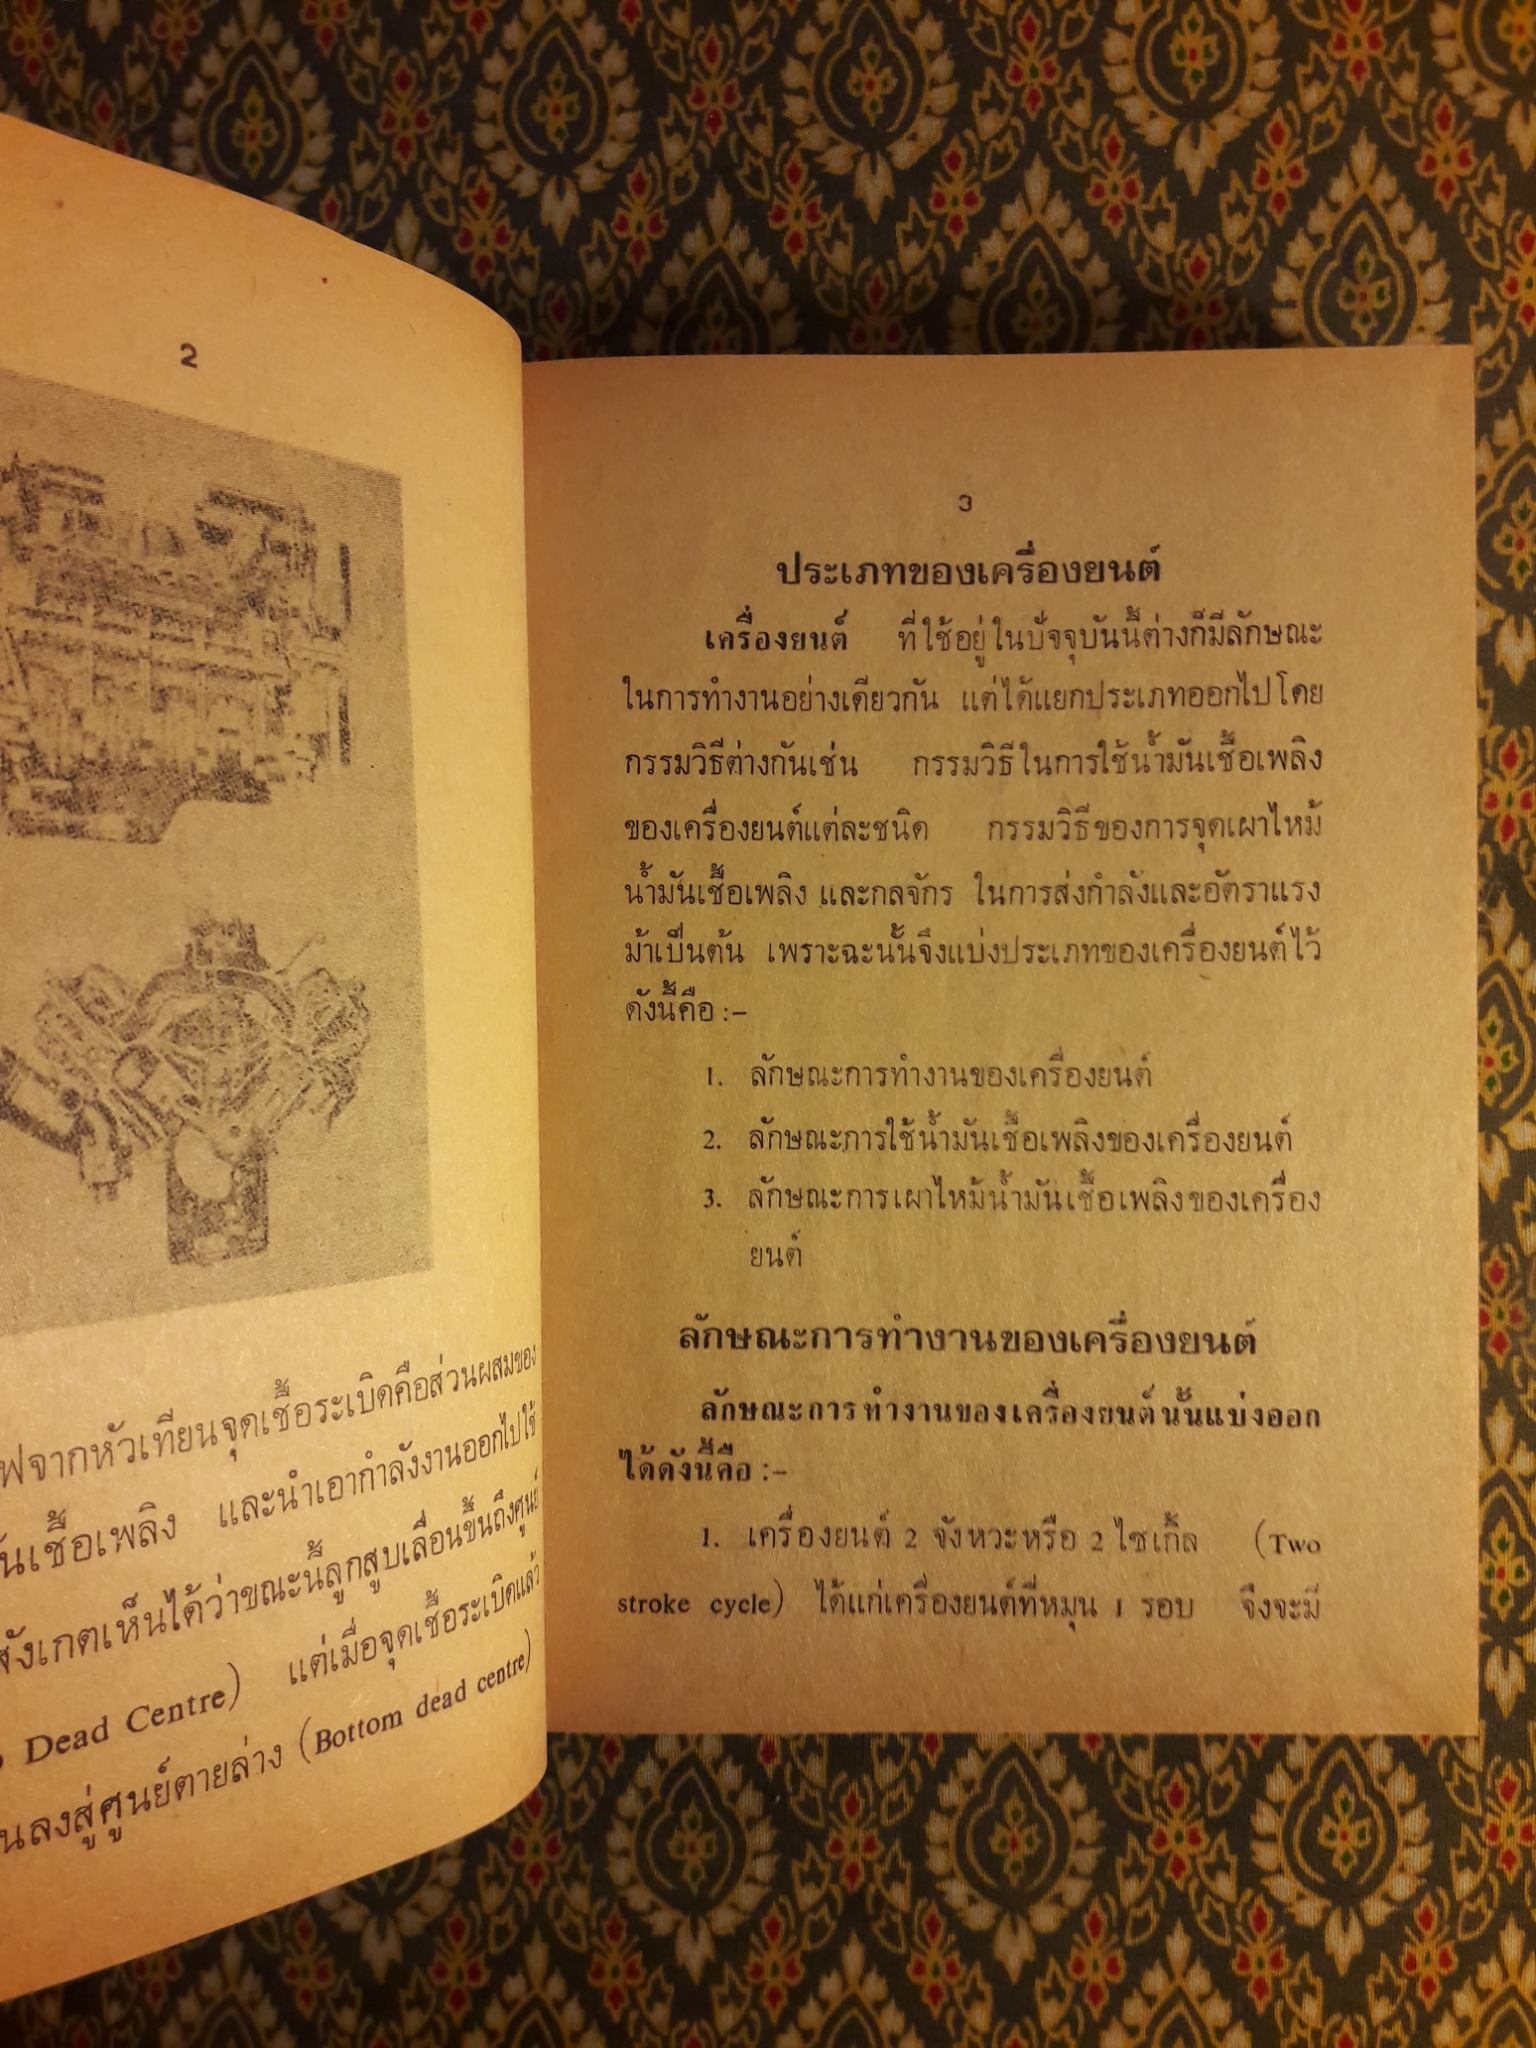 2
ฟจากหัวเทียนจุดเชื้อระเบิดคือส่วนผสมของ
ันเชื้อเพลิง และนำเอากำลังงานออกไปใช้
สังเกตเห็นได้ว่าขณะนี้ลูกสูบเลื่อนขึ้นถึงศูนย์
Dead Centre) แต่เมื่อจุดเชื้อระเบิดแล้ว
นลงสู่ศูนย์ตายล่าง (Bottom dead centre)
3
ประเภทของเครื่องยนต์
เครื่องยนต์ ที่ใช้อยู่ในปัจจุบันนี้ต่างก็มีลักษณะ
ในการทำงานอย่างเดียวกัน แต่ได้แยกประเภทออกไปโดย
กรรมวิธีต่างกันเช่น กรรมวิธีในการใช้น้ำมันเชื้อเพลิง
ของเครื่องยนต์แต่ละชนิด กรรมวิธีของการจุดเผาไหม้
น้ำมันเชื้อเพลิง และกลจักร ในการส่งกำลังและอัตราแรง
ม้าเป็นต้น เพราะฉะนั้นจึงแบ่งประเภทของเครื่องยนต์ไว้
ดังนี้คือ :–
1. ลักษณะการทำงานของเครื่องยนต์
2. ลักษณะการใช้น้ำมันเชื้อเพลิงของเครื่องยนต์
3. ลักษณะการเผาไหม้น้ำมันเชื้อเพลิงของเครื่อง
ยนต์
ลักษณะการทำงานของเครื่องยนต์
ลักษณะการทำงานของเครื่องยนต์นั้นแบ่งออก
ได้ดังนี้คือ :–
1. เครื่องยนต์ 2 จังหวะหรือ 2 ไซเกิ้ล (Two
stroke cycle) ได้แก่เครื่องยนต์ที่หมุน 1 รอบ จึงจะมี